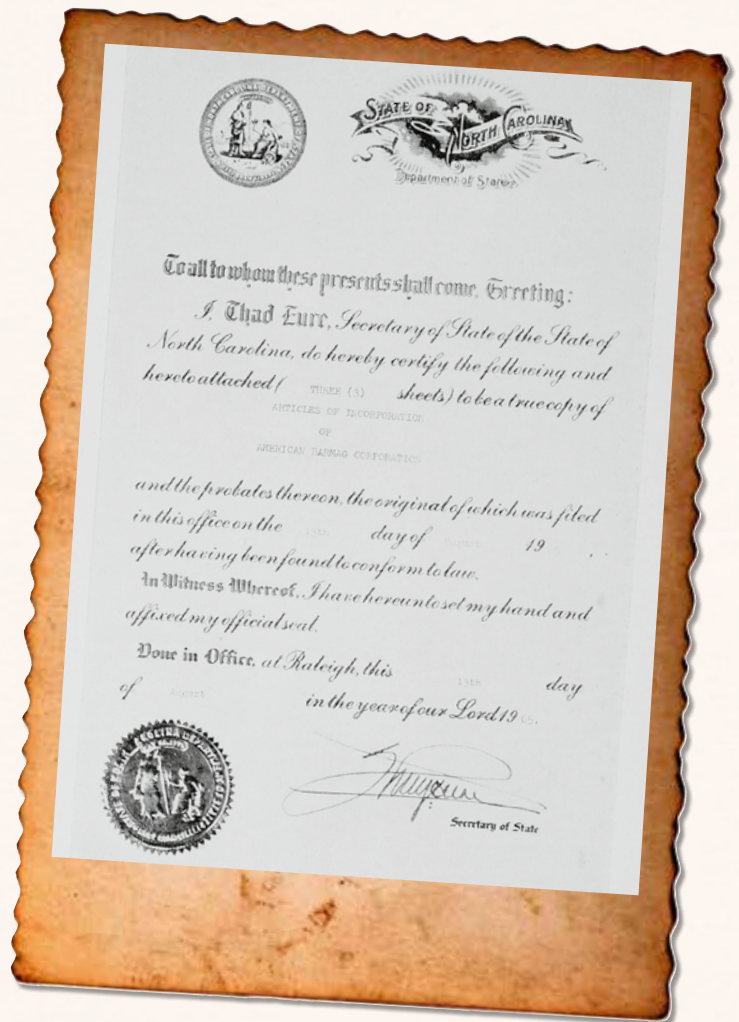 STATE OF
NORTH CAROLINA
Department of State
To all to whom these presents shall come, Greeting:
I, Thad Eure, Secretary of State of the State of
North Carolina, do hereby certify the following and
hereto attached ( THREE (3) sheets) to be a true copy of
ARTICLES OF INCORPORATION
OF
AMERICAN BARMAG CORPORATION
and the probates thereon, the original of which was filed
in this office on the 13th day of August 19 .
after having been found to conform to law.
In Witness Whereof, I have hereunto set my hand and
affixed my official seal.
Done in Office, at Raleigh, this 13th day
of August in the year of our Lord 19 65.
Secretary of State